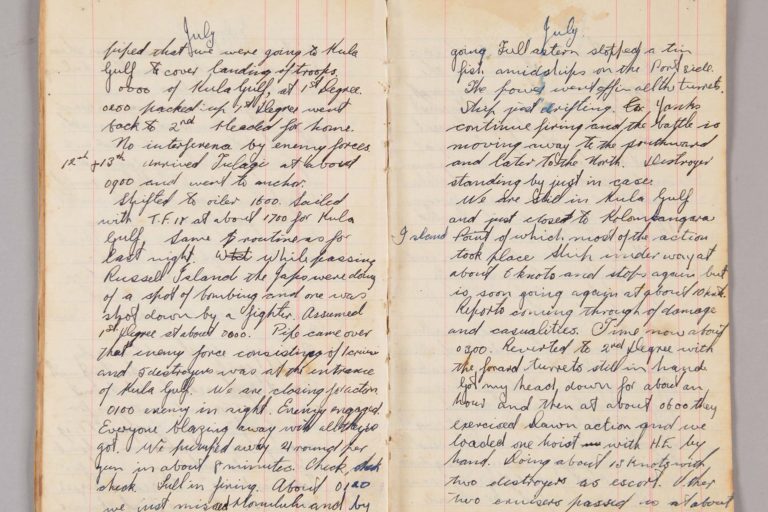 July
piped that we were going to Kula
Gulf to cover landing of troops.
0000 of Kula Gulf, at 1st Degree.
0200 packed up 1st Degree went
back to 2nd Headed for home.
No interference by enemy forces
12th + 13th arrived Tulagi at about
0900 and went to anchor.
Shifted to oiler 1600. Sailed
with T.F. 18 at about 1700 for Kula
Gulf. Same routine as for
last night. While passing
Russell Island the Japs were doing
of a spot of bombing and one was
shot down by a fighter. Assumed
1st Degree at about 0000. Pipe came over
that enemy force consisting of 1 cruiser
and 5 destroyers was at the entrance
of Kula Gulf. We are closing for action
0100 enemy in sight. Enemy engaged
Everyone blazing away with all they've
got. We pumped away 21 round per
gun in about 8 minutes. Check, check
check. Lull in firing. About 0120
we just missed Honolulu and by
July
going Full astern stopped a tin
fish amidships on the Port side.
The power went off in all the turrets.
Ship just drifting. Yanks
continue firing and the battle is
moving away to the southward
and later to the North. Destroyer
standing by just in case.
We are still in Kula Gulf
and just close to Kolombangara
Island Point of which most of the action
took place Ship under way at
about 6 knots and stops again but
is soon going again at about 10 knots.
Reports coming through of damage
and casualities. Time now about
0300. Reverted to 2nd Degree with
the forard turrets still in hand
Got my head down for about an
hour and then at about 0600 they
exercised dawn action and we
loaded one hoist with H.E. by
hand. Doing about 13 knots with
two destroyers as escort. Other
two cruisers passed us at about